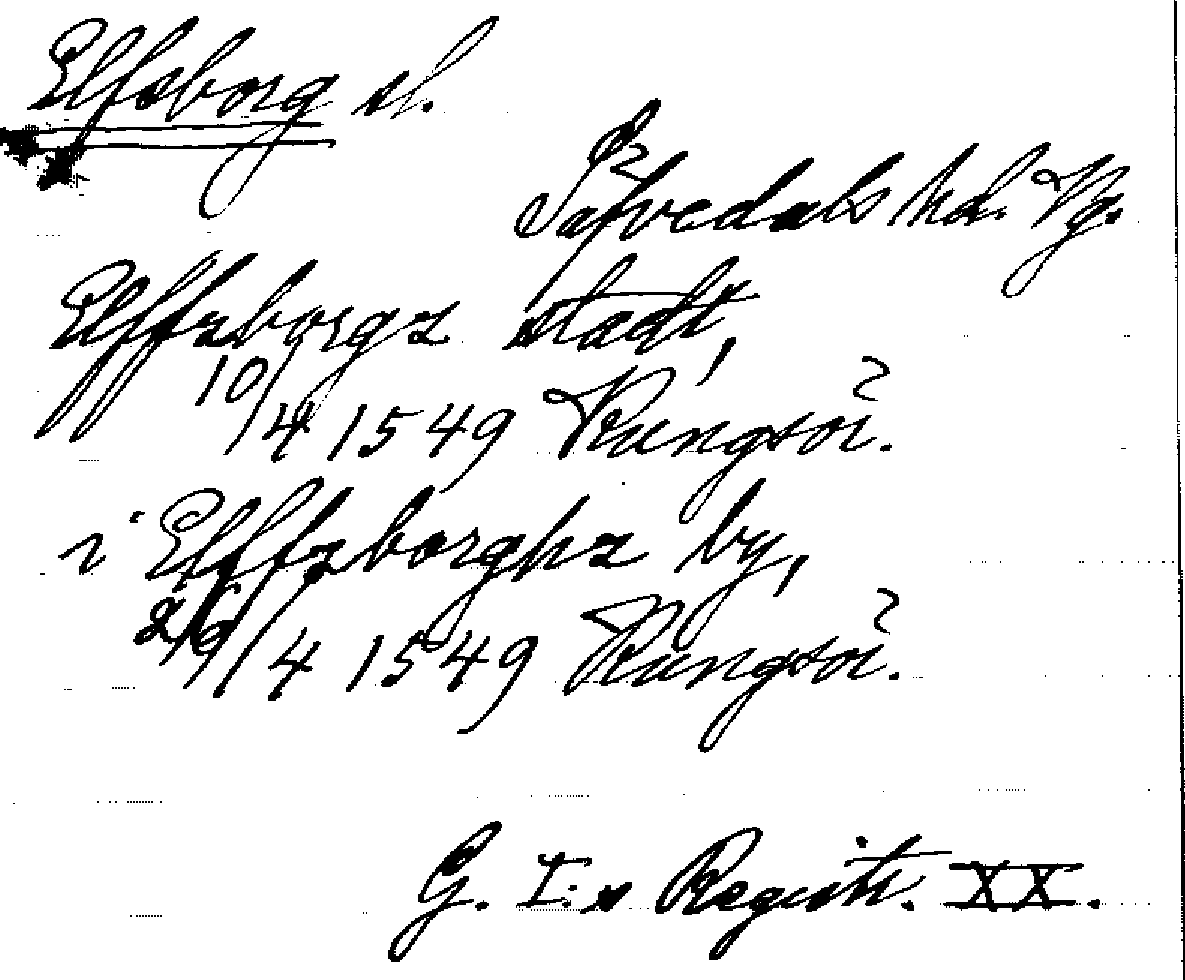 Elfsborg sl.
Säfvedals hd. Vg.
Elffzborgz stadt,
10/4 1549 Kungsör.
i Elffzborghz by,
/4 1549 Kungsör.
G. I:s Registr. XX.